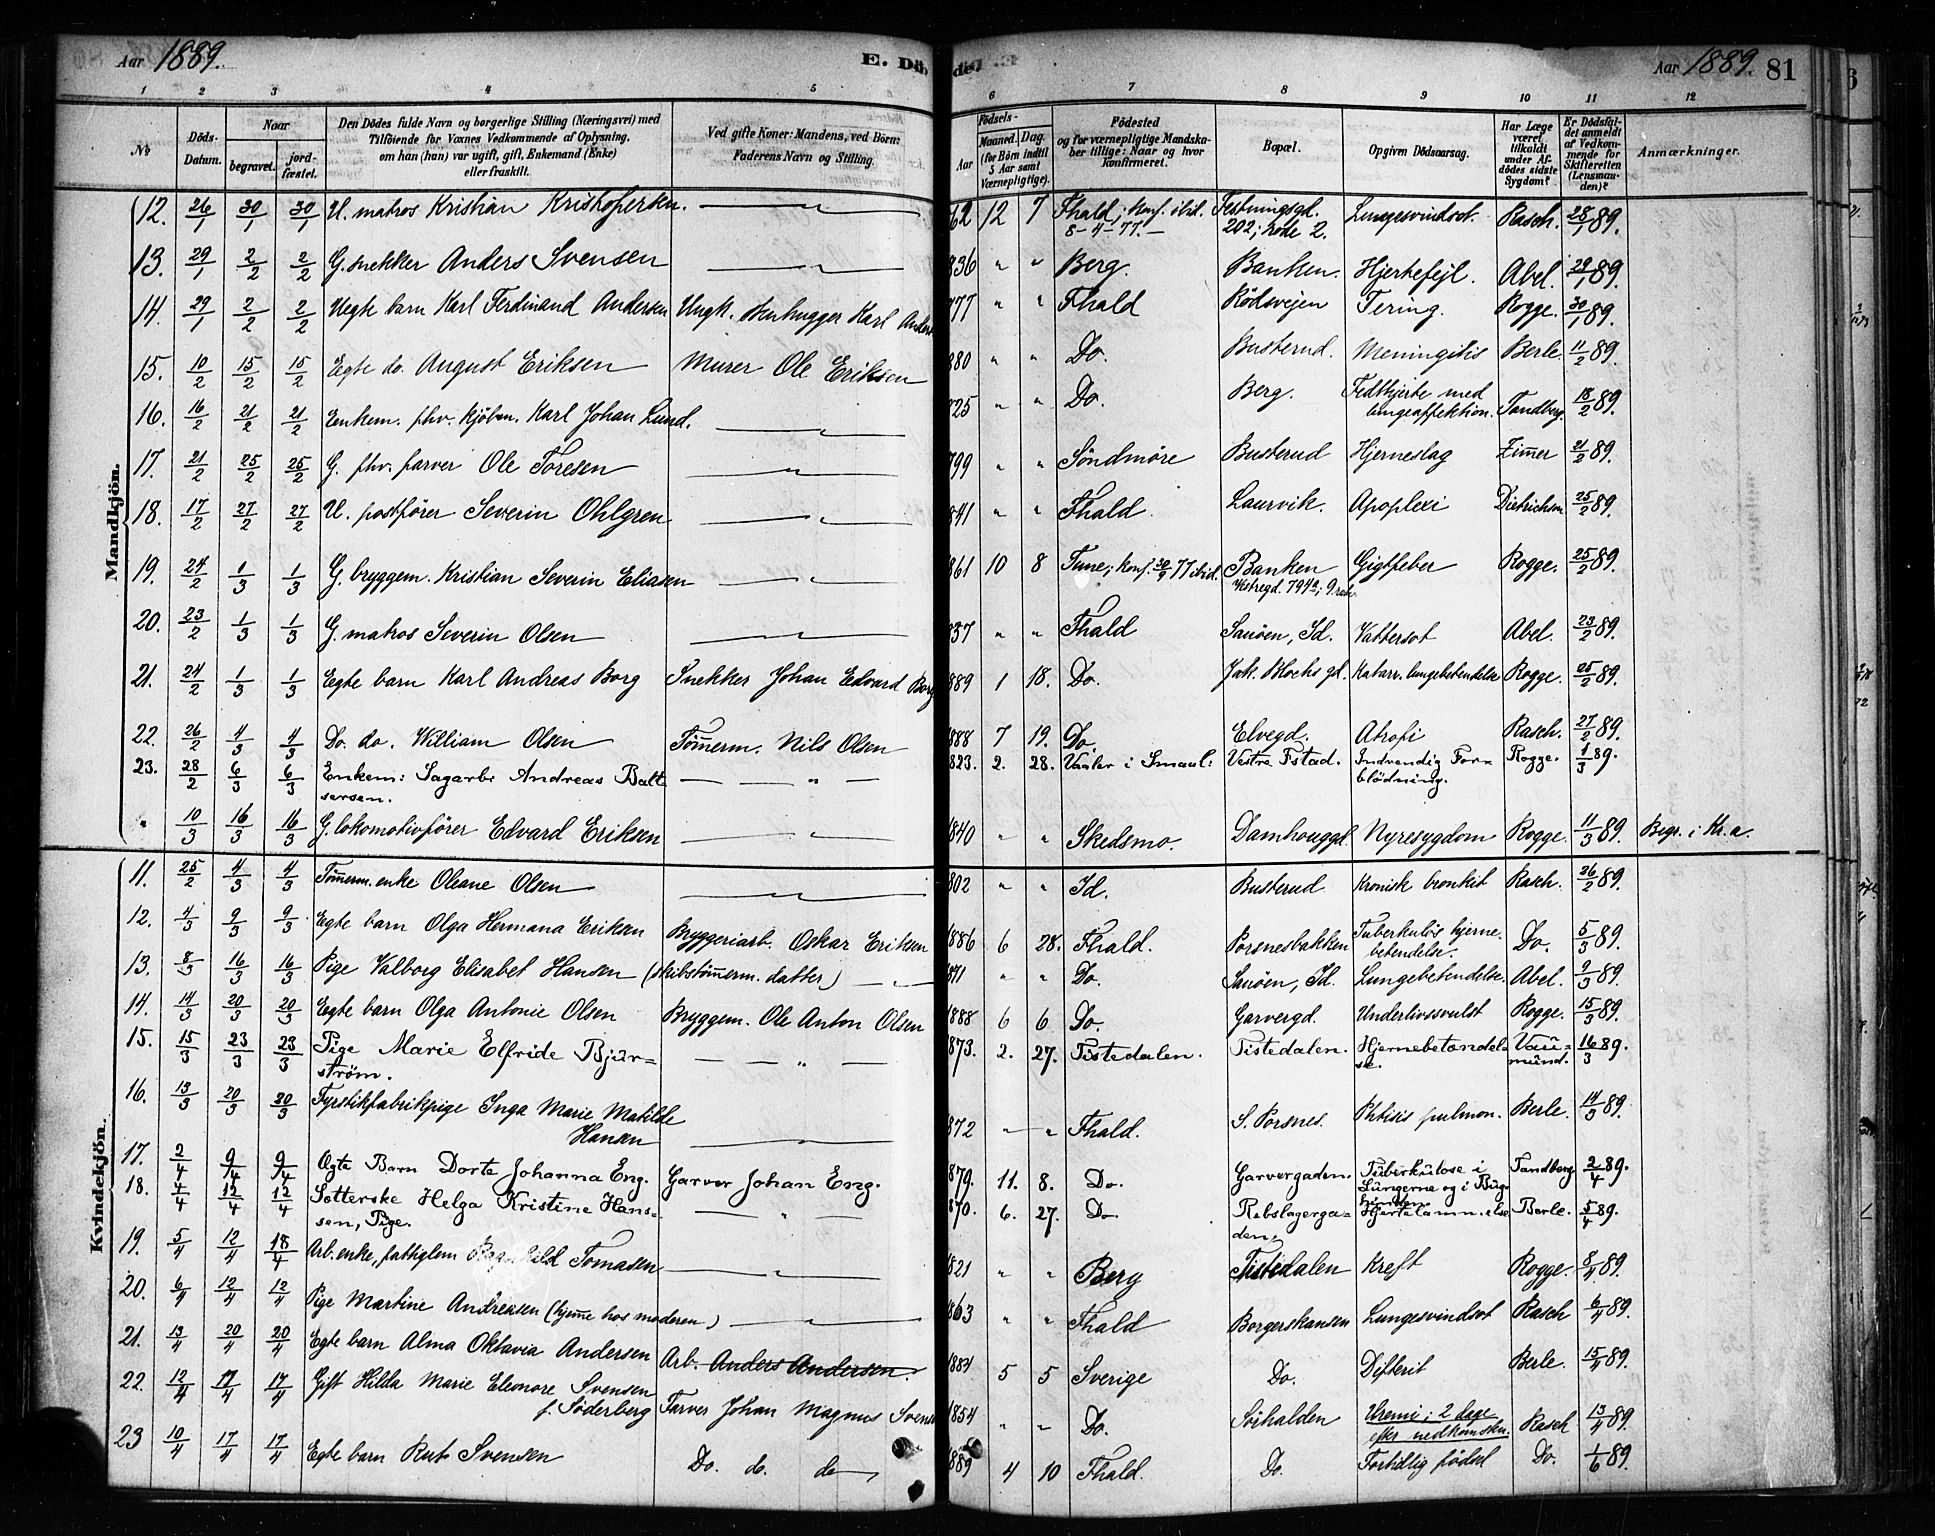 Aar 1889. E. Döde. Aar 1889. 81
1 2 3 4 5 6 7 8 9 10 11 12
No
Döds-Datum.
Naar begravet. jord-fæstet.
Den Dödes fulde Navn og borgerlige Stilling (Næringsvei) med Tilföiende for Voxnes Vedkommende af Oplysning, om han (hun) var ugift, gift, Enkemand (Enke) eller fraskilt.
Ved gifte Koner: Mandens, ved Börn: Faderens Navn og Stilling.
Födsels- Aar Maaned. Dag. (for Börn indtil 5 Aar samt Værnepligtige).
Födested og for værnepligtige Mandskaber tillige: Naar og hvor Konfirmeret.
Bopæl.
Opgiven Dödsaarsag.
Har Læge været tilkaldt under Afdödes sidste Sygdom?
Er Dödsfaldet anmeldt af Vedkommende for Skifteretten (Lensmanden)?
Anmærkninger.
Mandkjön.
12. 26/1 30/1 30/1 U. matros Kristian Kristofersen. — " — 62 12 7 Fhald; Konf. ibid. 8-4-77.- Festningsgd. 202; rode 2. Lungesvindsot. Rasch. 28/1 89.
13. 29/1 2/2 2/2 G. snekker Anders Svensen — " — 836 " " Berg. Banken. Hjertefejl. Abel. 29/1 89.
14. 29/1 2/2 2/2 Uegte barn Karl Ferdinand Andersen Ungk. stenhugger Karl Anders 877 " " Fhald Rödsvejen Tering. Rogge. 30/1 89.
15. 10/2 15/2 15/2 Egte do. August Eriksen Murer Ole Eriksen 880 " " Do. Busterud. Meningitis Berle. 11/2 89.
16. 16/2 21/2 21/2 Enkem. fhv. kjöbm. Karl Johan Lund. — " — 825 " " Do. Berg. Fedthjerte med lungeaffektion. Tandberg. 18/2 89.
17. 21/2 25/2 25/2 G. fhv. farver Ole Toresen — " — 799 " " Söndmöre Busterud Hjerneslag Zimmer 21/2 89.
18. 17/2 27/2 27/2 U. postförer Severin Ohlgren — " — 841 " " Fhald. Laurvik. Apoplexi Dietrichson 25/2 89.
19. 24/2 1/3 1/3 G. bryggem. Kristian Severin Eliasen — " — 861 10 8 Tune; konf. 30/9 77 ibid. Banken Vestregd. 794a; 9. rode. Gigtfeber Rogge. 25/2 89.
20. 23/2 1/3 1/3 G. matros Severin Olsen — " — 837 " " Fhald Sauöen, Id. Vattersot Abel. 23/2 89.
21. 24/2 1/3 1/3 Egte barn Karl Andreas Borg Snekker Johan Edvard Borg 889 1 18. Do. Jak. Blochs gd. Katarr. lungebetendelse Rogge. 25/2 89.
22. 26/2 4/3 4/3 Do. do. William Olsen Tömmerm. Nils Olsen 1888 7 19. Do. Elvegd. Atrofi Rasch. 27/2 89.
23. 28/2 6/3 6/3 Enkem: Sagarbr Andreas Baltsersen. — " — 1823. 2. 28. Vaaler i Smaal: Vestre Fstad. Indvendig Forblödning. Rogge. 1/3 89.
" 10/3 16/3 16/3 G. lokomotivförer Edvard Eriksen — " — 1840 " " Skedsmo. Damhauggd. Nyresygdom Rogge. 11/3 89. Begr. i Kr.a.
Kvindekjön.
11. 25/2 4/3 4/3 Tömmerm. enke Oleane Olsen — " — 802 " " Id. Busterud Kronisk bronkit Rasch. 26/2 89.
12. 4/3 9/3 9/3 Egte barn Olga Hermana Eriksen Bryggeriarb. Oskar Eriksen 1886 6 28. Fhald. Porsnesbakken Tuberkulös hjernebetendelse. Do. 5/3 89.
13. 8/3 16/3 16/3 Pige Valborg Elisabet Hansen (skibstömmerm. datter) — " — 871 " " Do. Sauöen, Id. Lungebetendelse. Abel. 9/3 89.
14. 14/3 20/3 20/3 Egte barn Olga Antonie Olsen Bryggem. Ole Anton Olsen 1888 6 6. Do. Garvergd. Underlivssvulst Rogge. 15/3 89.
15. 15/3 23/3 23/3 Pige Marie Elfride Bjurström. — " — 873. 2. 27. Tistedalen. Tistedalen. Hjernebetændelse. 16/3 89.
16. 13/3 20/3 20/3 Fyrstikfabrikpige Inga Marie Matilde Hansen — " — 872 — " Fhald. S. Porsnes. Phtisis pulmon. Berle. 14/3 89.
17. 2/4 9/4 9/4 Ægte Barn Dorte Johanna Eng. Garver Johan Eng. 879. 11. 8. Do. Garvergaden. Tuberkulose i Lungerne og i Bughinden. Tandberg 2/4 89.
18. 4/4 12/4 12/4 Sötterske Helga Kristine Hanssen, Pige. — " — 870. 6. 27. Do. Rebslagergaden. Hjertelamm.else. Berle. 5/4 89.
19. 5/4 12/4 18/4 Arb. enke, fattiglem Ragnhild Tomasen — " — 1821 " " Berg Tistedalen Kreft Rogge. 8/4 89.
20. 6/4 12/4 12/4 Pige Martine Andreasen (hjemme hos moderen) — " — 863 " " Fhald Borgerskansen Lungesvindsot Rasch 6/4 89.
21. 13/4 20/4 20/4 Egte barn Alma Oktavia Andersen Arb. Anders Andersen. 1884 5 5 Sverige Do. Difterit Berle. 15/4 89.
22. 12/4 17/4 17/4 Gift Hilda Marie Eleonore Svensen f. Söderberg Farver Johan Magnus Svens 1854 " " Do. Söihalden Uremi; 2 dage efter nedkomsten. Rasch 13/4 89.
23 10/4 17/4 17/4 Egte barn Rut Svensen Do. do. do 889 4 10 Fhald. Do. Fortidlig födsel Do. 1/6 89.